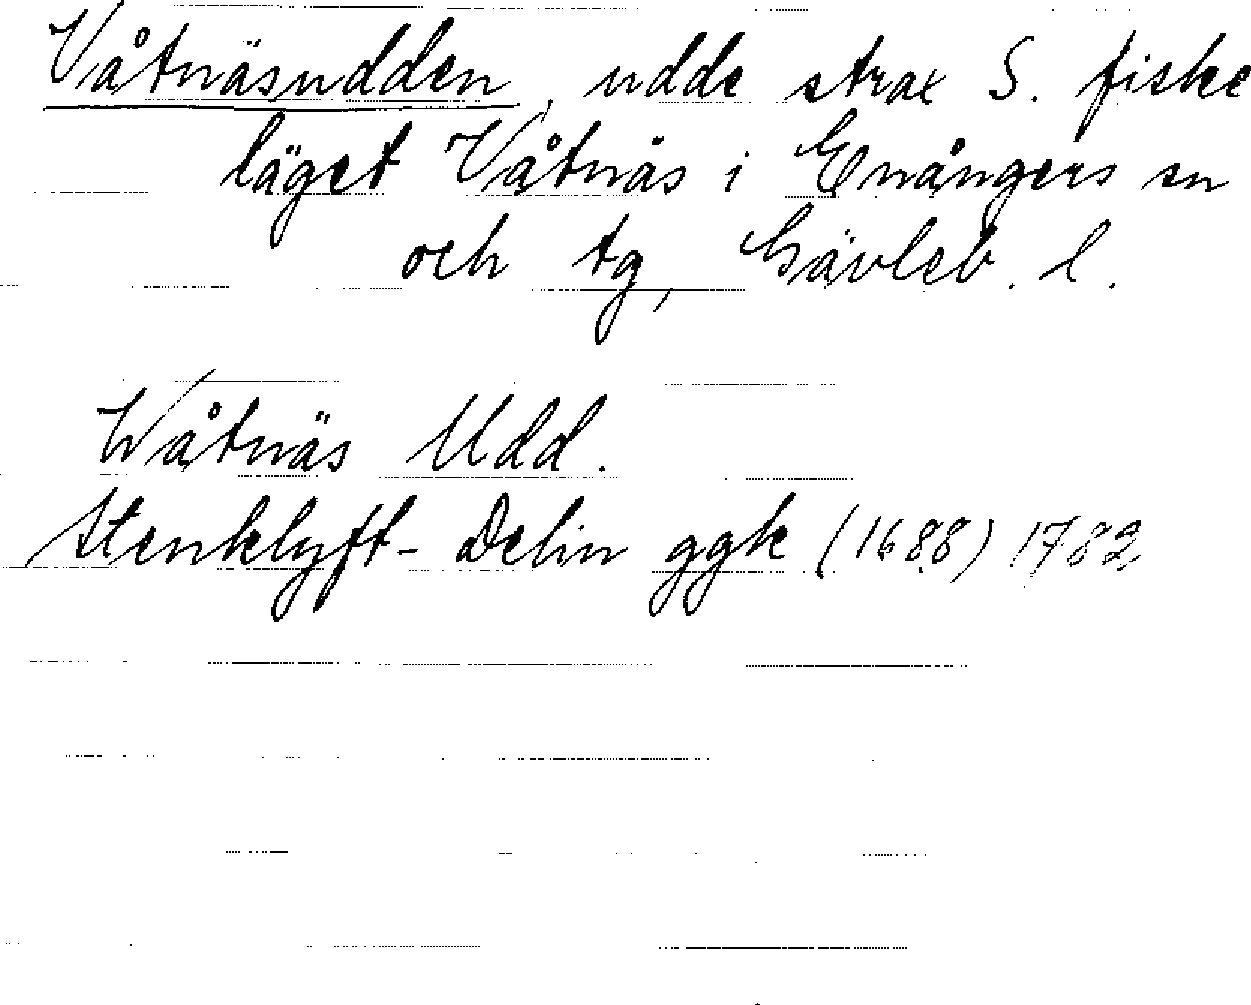 Våtnäsudden, udde strax S. fiske
läget Våtnäs i Enångers sn
och tg, Gävleb. l.
Wåtnäs Udd.
Stenklyft-Delin ggk (1688) 1782